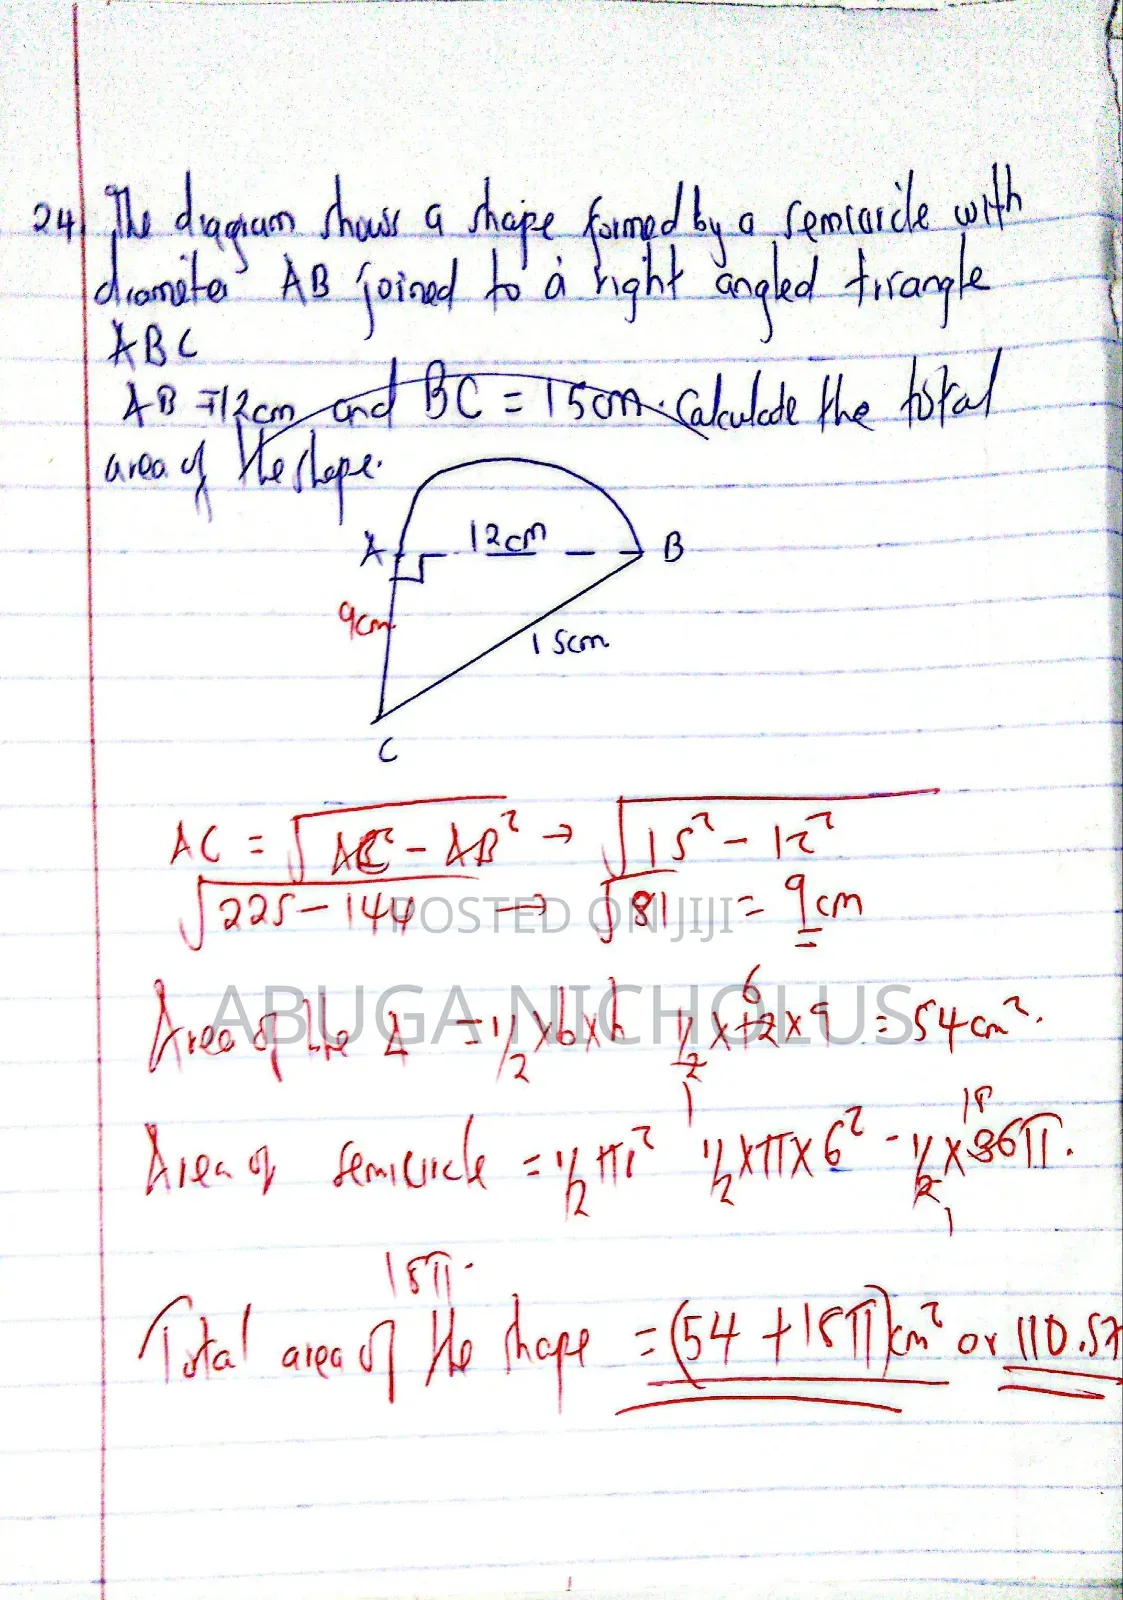 24. The diagram shows a shape formed by a semicircle with
diameter AB joined to a right angled triangle
ABC
AB = 12cm and BC = 15cm. Calculate the total
area of the shape.
A 12cm B
9cm
15cm
C
AC = √AC² - AB² → √15² - 12²
√225 - 144 → √81 = 9cm
POSTED ON JIJI
ABUGA NICHOLUS
Area of the Δ = 1/2 × b × h 1/2 × 12 × 9 = 54cm².
6
1
Area of semicircle = 1/2 πr² 1/2 × π × 6² - 1/2 × 36π.
18
1
18π.
Total area of the shape = (54 + 18π)cm² or 110.57